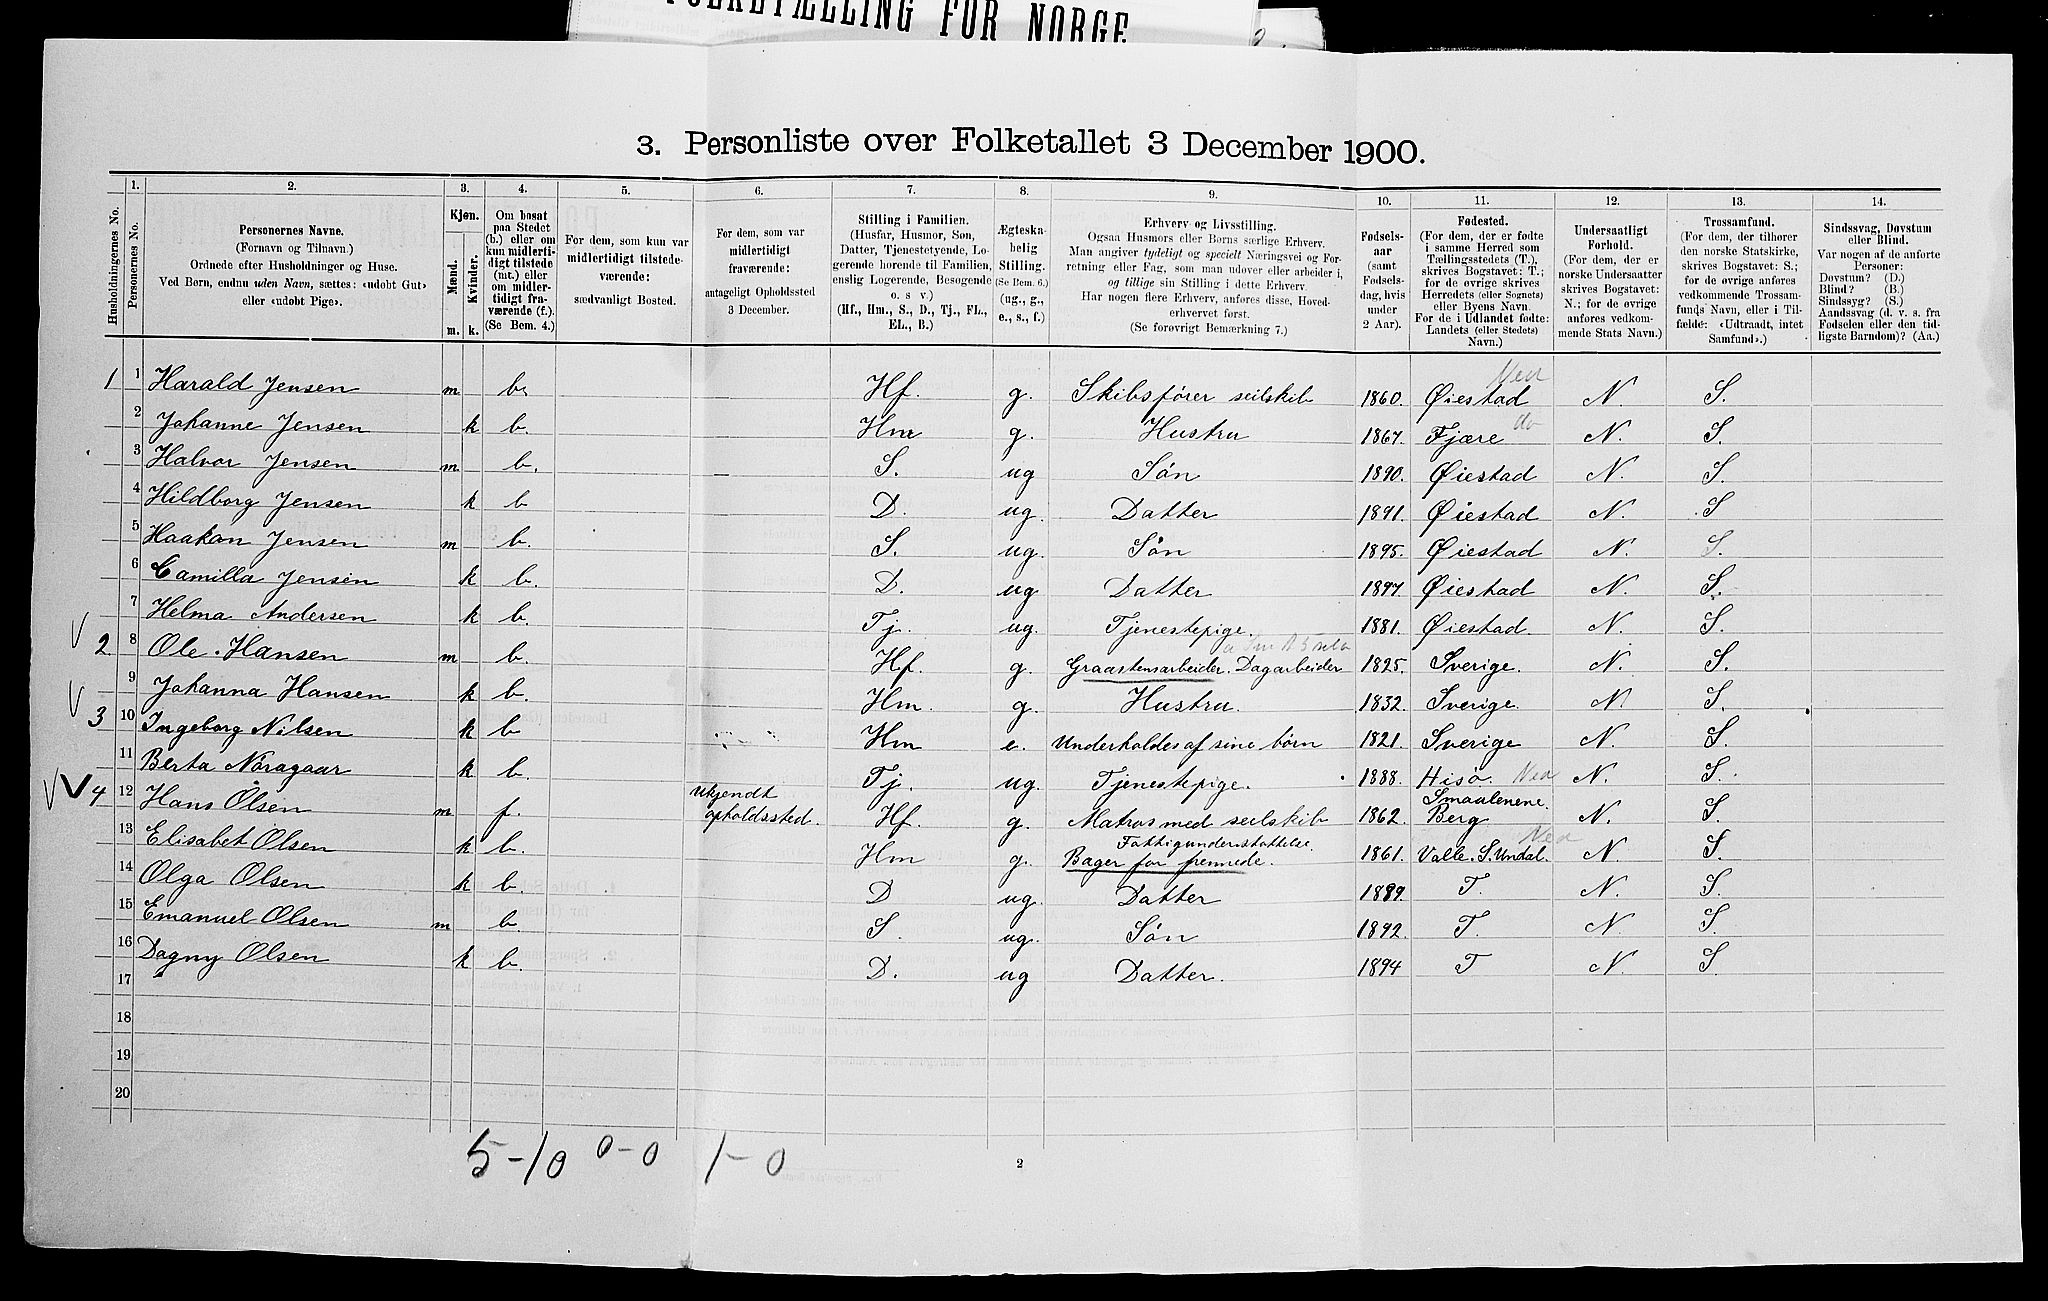 FOLKETÆLLING FOR NORGE
3. Personliste over Folketallet 3 December 1900.
1. 2. 3. 4. 5. 6. 7. 8. 9. 10. 11. 12. 13. 14.
Husholdningernes No.
Personernes No.
Personernes Navne.
(Fornavn og Tilnavn.)
Ordnede efter Husholdninger og Huse.
Ved Børn, endnu uden Navn, sættes: «udøbt Gut»
eller «udøbt Pige».
Kjøn.
Mænd.
Kvinder.
m. k.
Om bosat
paa Stedet
(b.) eller om
kun midlerti-
digt tilstede
(mt.) eller
om midler-
tidigt fra-
værende (f.).
(Se Bem. 4.)
For dem, som kun var
midlertidigt tilstede-
værende:
sædvanligt Bosted.
For dem, som var
midlertidigt
fraværende:
antageligt Opholdssted
3 December.
Stilling i Familien.
(Husfar, Husmor, Søn,
Datter, Tjenestetyende, Lo-
gerende hørende til Familien,
enslig Logerende, Besøgende
o. s v.)
(Hf., Hm., S., D., Tj., FL.,
EL., B.)
Ægteska-
belig
Stilling.
(Se Bem. 6.)
(ug., g.,
e., s., f.)
Erhverv og Livsstilling.
Ogsaa Husmors eller Børns særlige Erhverv.
Man angiver tydeligt og specielt Næringsvei og For-
retning eller Fag, som man udøver eller arbeider i,
og tillige sin Stilling i dette Erhverv.
Har nogen flere Erhverv, anføres disse, Hoved-
erhvervet først.
(Se forøvrigt Bemærkning 7.)
Fødsels-
aar
(samt
Fødsels-
dag, hvis
under
2 Aar).
Fødested.
(For dem, der er fødte
i samme Herred som
Tællingsstedets (T.),
skrives Bogstavet: T.;
for de øvrige skrives
Herredets (eller Sognets)
eller Byens Navn.
For de i Udlandet fødte:
Landets (eller Stedets)
Navn.)
Undersaatligt
Forhold.
(For dem, der er
norske Undersaatter
skrives Bogstavet:
N.; for de øvrige
anføres vedkom-
mende Stats Navn.)
Trossamfund.
(For dem, der tilhører
den norske Statskirke,
skrives Bogstavet: S.;
for de øvrige anføres
vedkommende Trossam-
funds Navn, eller i Til-
fælde: «Udtraadt, intet
Samfund».)
Sindssvag, Døvstum
eller Blind.
Var nogen af de anførte
Personer:
Døvstum? (D.)
Blind? (B.)
Sindssyg? (S.)
Aandssvag (d. v. s. fra
Fødselen eller den tid-
ligste Barndom)? (Aa.)
1 1 Harald Jensen m b. Hf. g. Skibsfører seilskib 1860. Øiestad N. S.
2 Johanne Jensen k b. Hm g. Hustru 1867. Fjære N. S.
3 Halvor Jensen m b. S. ug Søn 1890. Øiestad N. S.
4 Hildborg Jensen k b D. ug. Datter 1891. Øiestad N. S
5 Haakon Jensen m b. S. ug. Søn 1895. Øiestad N. S.
6 Camilla Jensen k b. D. ug Datter 1897. Øiestad N. S.
7 Helma Andersen k b. Tj. ug. Tjenestepige. 1881. Øiestad. N. S.
2 8 Ole Hansen m b. Hf. g. Graastensarbeider. Dagarbeider 1825. Sverige. N. S.
9 Johanna Hansen k b. Hm. g. Hustru. 1832. Sverige. N. S.
3 10 Ingeborg Nilsen k b Hm e. Underholdes af sine børn 1821. Sverige N. S.
11 Berta Noragaar k b. Tj. ug. Tjenestepige. 1888. Hisø. N. S.
4 12 Hans Olsen m f. Ukjendt opholdssted. Hf. g. Matros med seilskib 1862. Smaalenene. Berg N. S.
13 Elisabet Olsen k b. Hm g. Fattigunderstøttelse. Bager for fremmede. 1861. Valle. S. Undal. N. S.
14 Olga Olsen k b. D ug. Datter 1889. T. N. S.
15 Emanuel Olsen m b. S. ug. Søn 1892. T. N. S.
16 Dagny Olsen k b. D. ug Datter. 1894 T N. S.
17
18
19
20
5-10 0-0 1-0
2